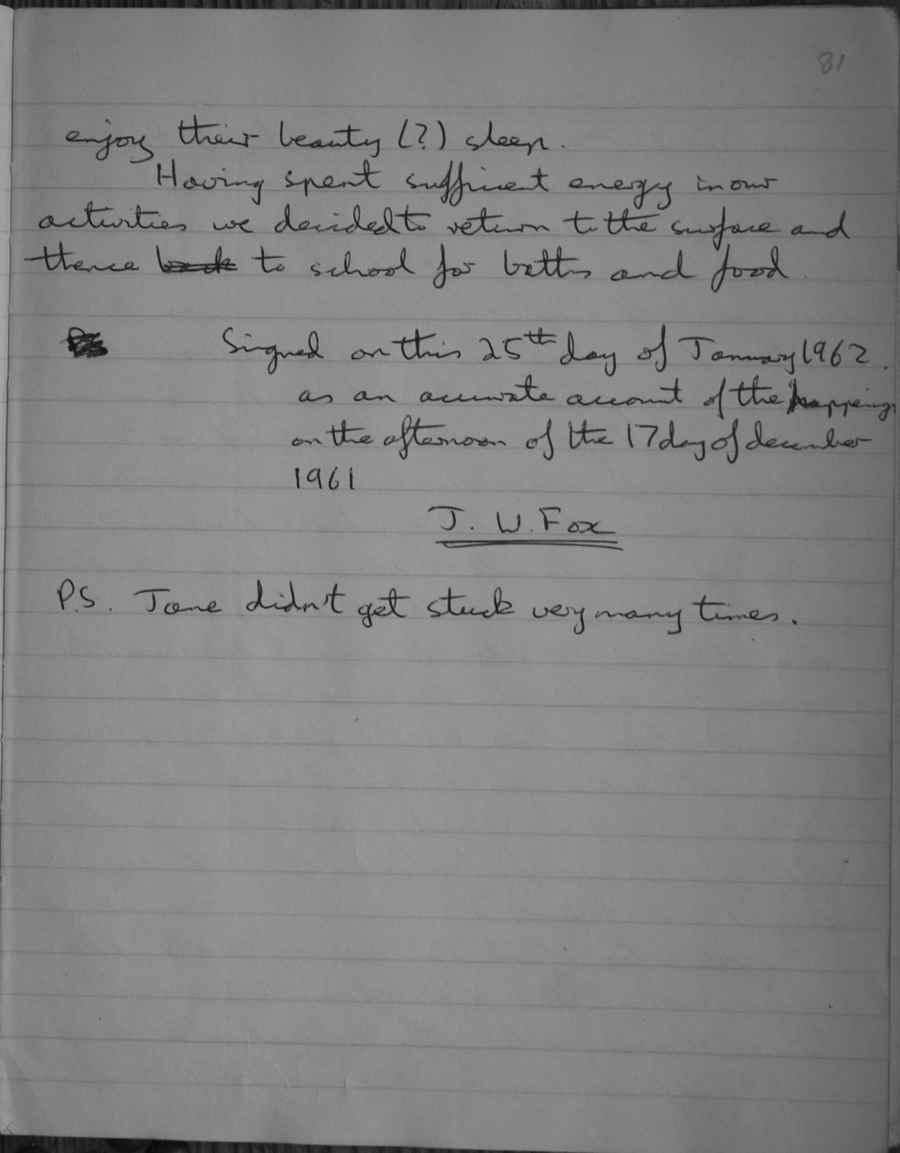 81
enjoy their beauty (?) sleep.
Having spent sufficient energy in our
activities we decided to return to the surface and
thence back to school for baths and food.
Signed on this 25th day of January 1962.
as an accurate account of the happenings
on the afternoon of the 17 day of december
1961
J. W. Fox
P.S. Jane didn't get stuck very many times.